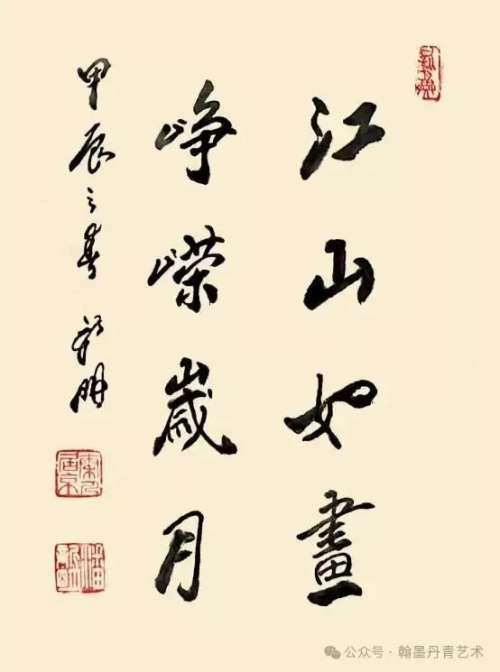 江山如畫
峥嶸歲月
甲辰之春
公众号·翰墨丹青艺术